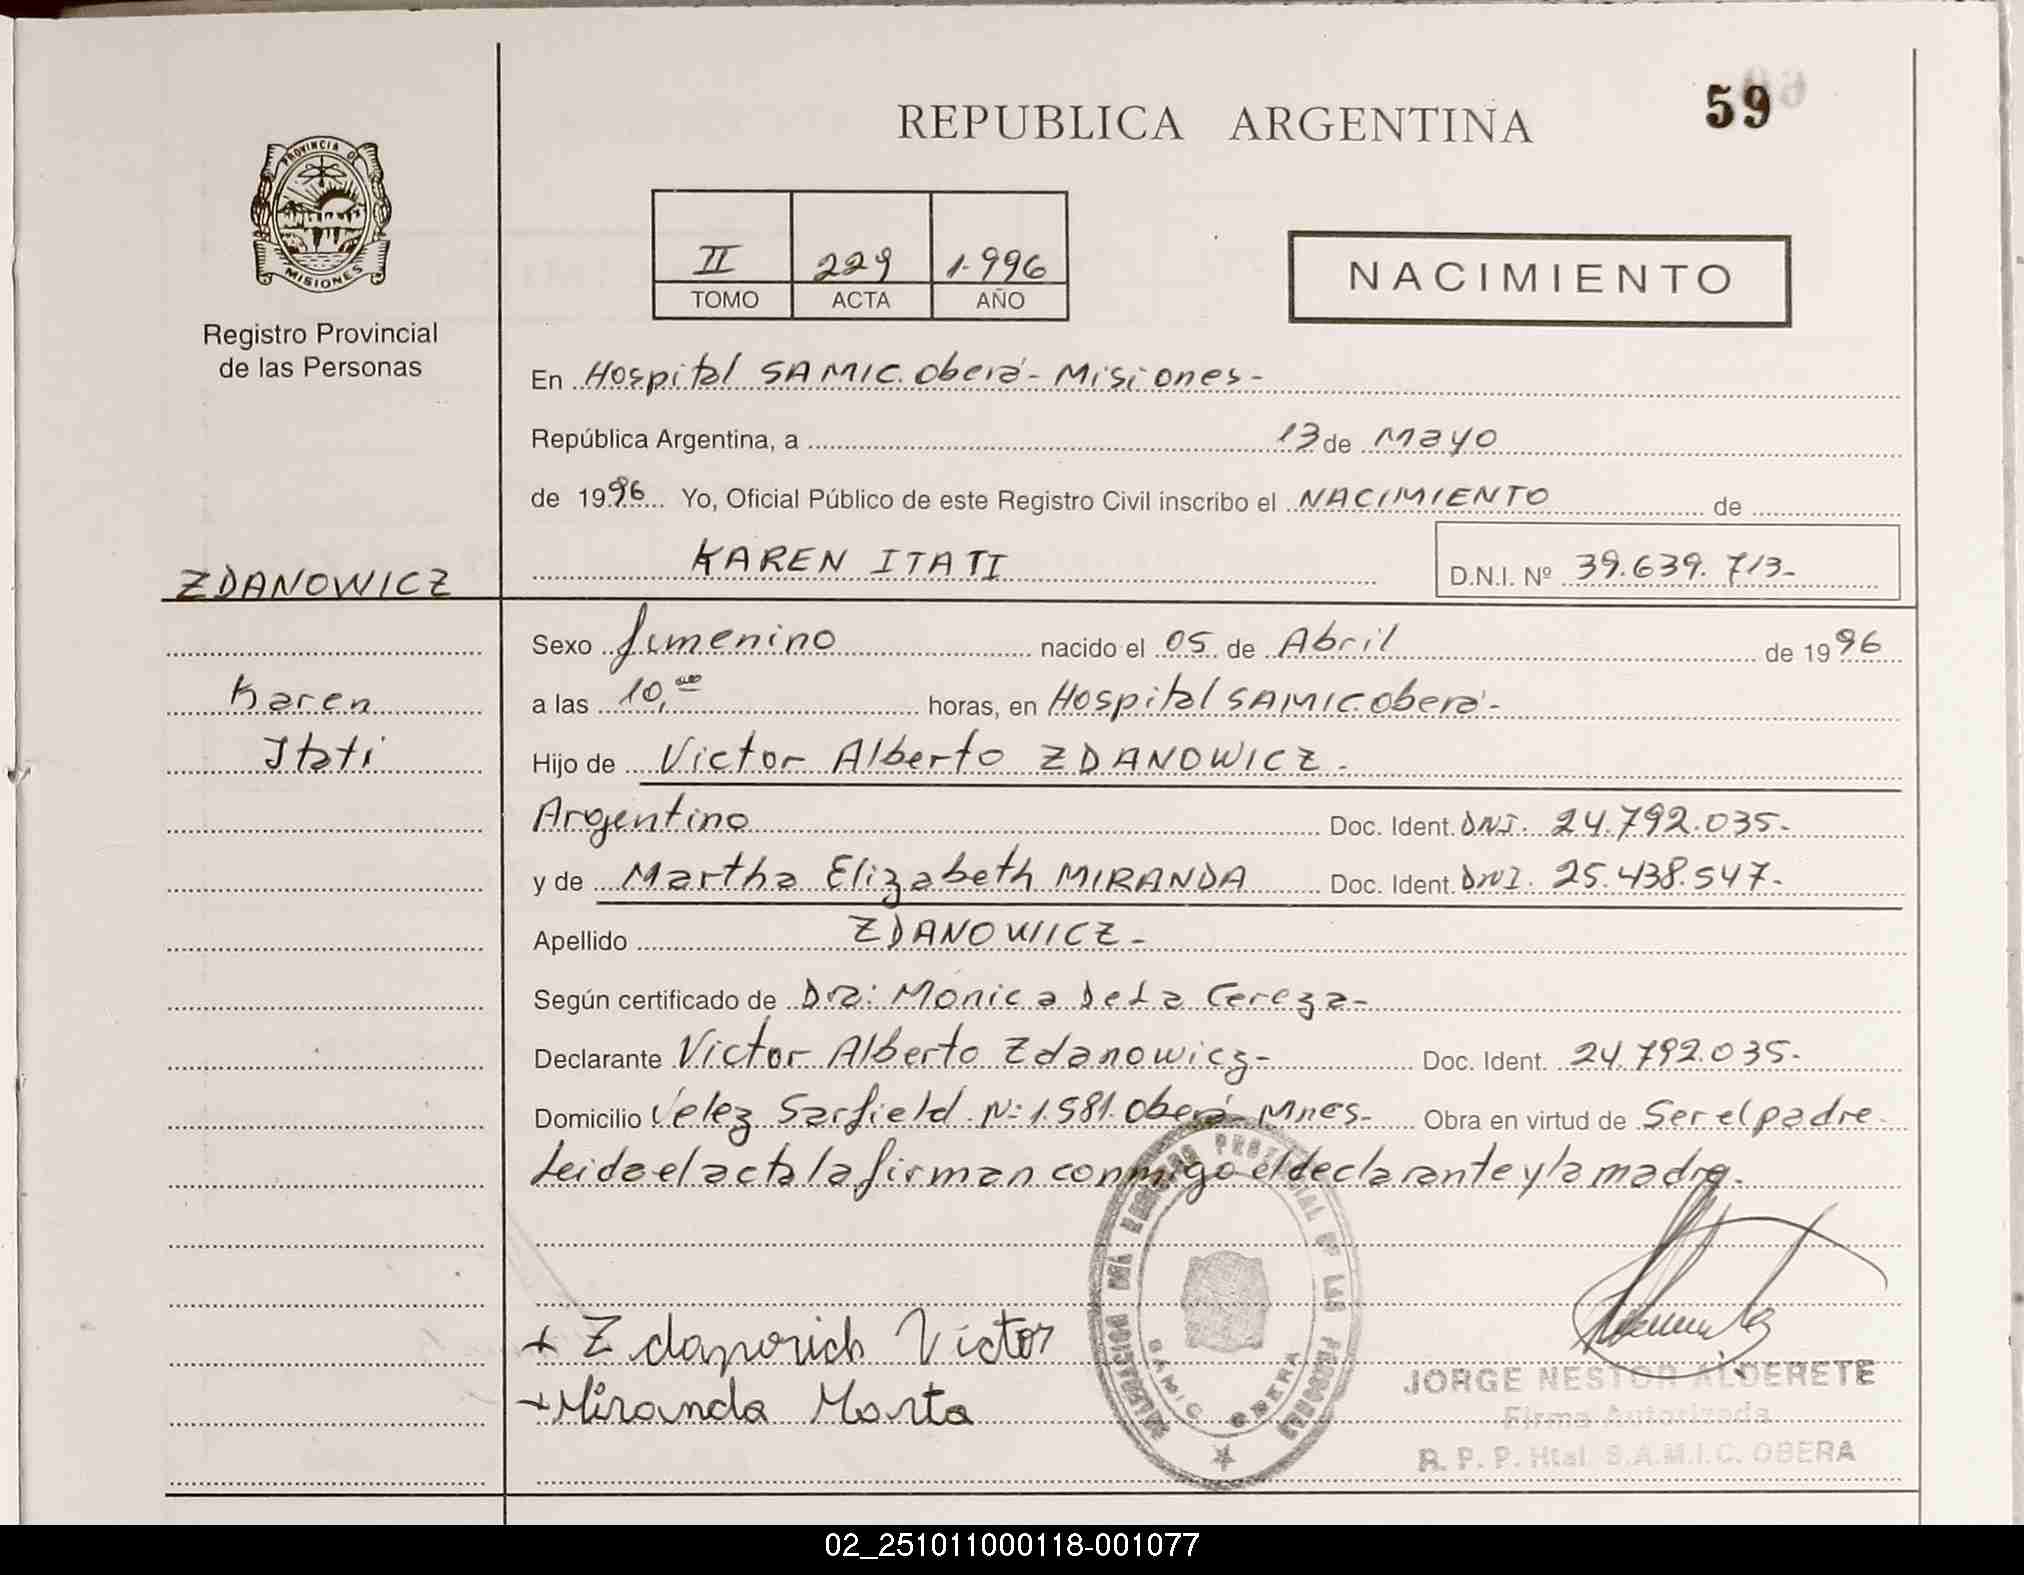 59
REPUBLICA ARGENTINA
PROVINCIA DE
MISIONES
Registro Provincial
de las Personas
II 229 1.996
TOMO ACTA AÑO
NACIMIENTO
En Hospital SAMIC. Oberá - Misiones -
República Argentina, a 13 de Mayo
de 1996 Yo, Oficial Público de este Registro Civil inscribo el NACIMIENTO de
KAREN ITATI D.N.I. Nº 39.639.713-
ZDANOWICZ
Karen
Itati
Sexo femenino nacido el 05 de Abril de 1996
a las 10,00 horas, en Hospital SAMIC Oberá -
Hijo de Victor Alberto ZDANOWICZ -
Argentino Doc. Ident. DNI. 24.792.035-
y de Martha Elizabeth MIRANDA Doc. Ident. DNI. 25.438.547-
Apellido ZDANOWICZ -
Según certificado de Dra: Monica De La Cereza -
Declarante Victor Alberto Zdanowicz - Doc. Ident. 24.792.035-
Domicilio Velez Sarfield Nº 1.581. Oberá - Mnes - Obra en virtud de Ser el padre -
Leida el acta la firman conmigo el declarante y la madre.
+ Zdanovich Victor
+ Miranda Marta
REGISTRO PROVINCIAL DE LAS PERSONAS
SAMIC OBERA
JORGE NESTOR ALDERETE
Firma Autorizada
R. P. P. Htal. S.A.M.I.C. OBERA
02_251011000118-001077